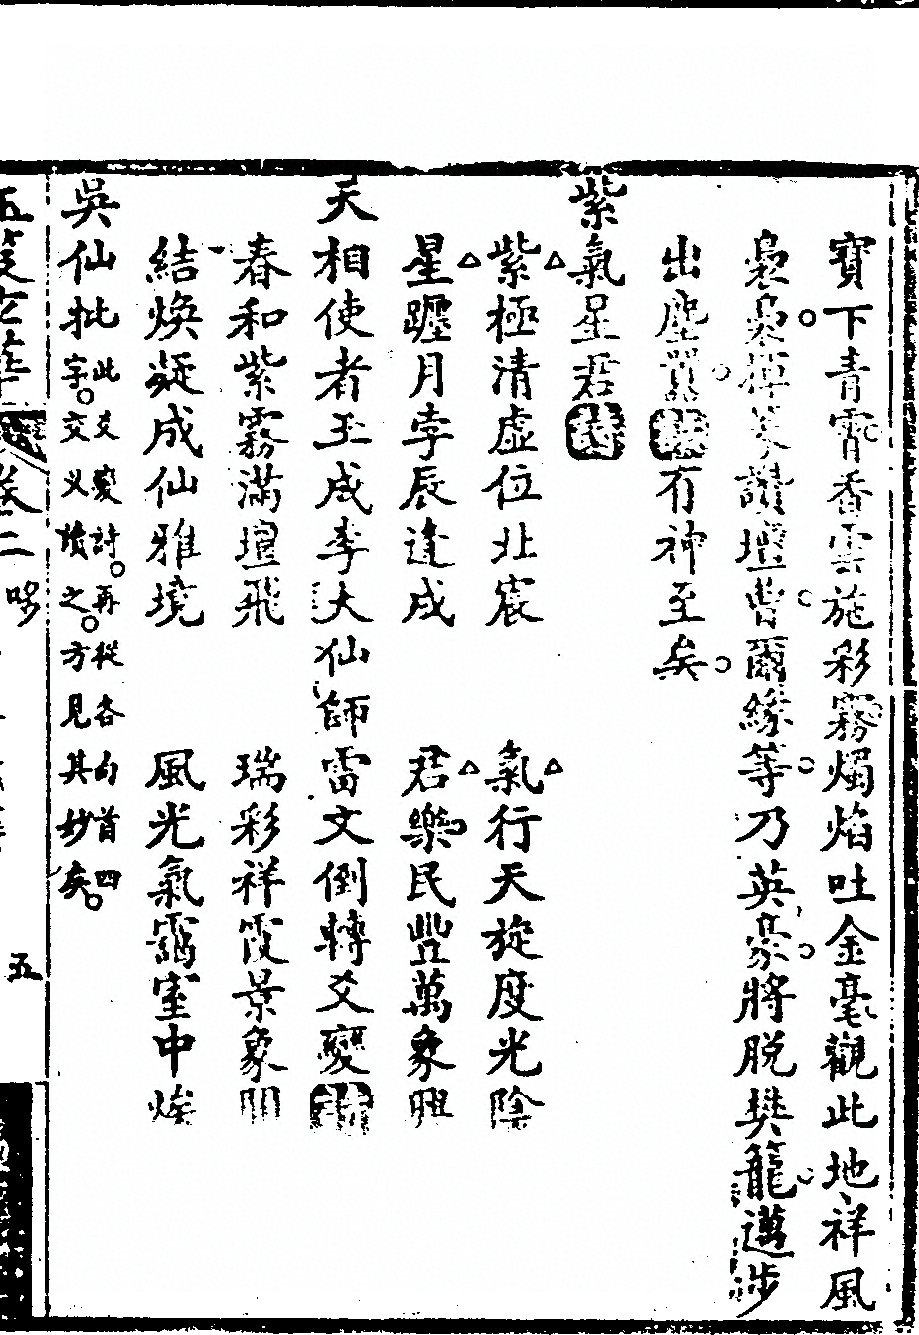 寶下青霄香雲施彩霧燭焰吐金毫觀此地祥風
裊裊樺募讚壇曹爾緣等乃英豪將脫樊籠邁涉
出塵囂 有神至矣
紫氣星君
紫極清虛位北宸 氣行天旋度光陰
星躔月孛辰逢戍 君樂民豐萬象興
天相使者王成李大仙師雷文倒轉爻變
春和紫霧滿壇飛 瑞彩祥霞景象
結煥凝成仙雅境 風光氣靄室中
吳仙批此爻變詩再從各句首四
字交义讀之方見其妙矣
卷二
五